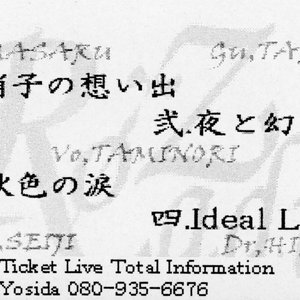 MASARU Gu,TA
肖子の想い出
弐.夜と幻
Vo,TAMINORI
火色の涙
四.Ideal L
,SEIJI Dr,HI
Ticket Live Total Information
Yosida 080-935-6676